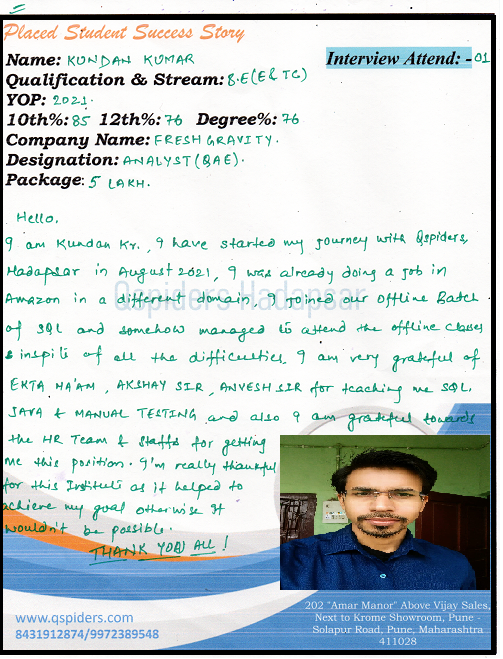 Placed Student Success Story
Name: KUNDAN KUMAR
Interview Attend: - 01
Qualification & Stream: B.E(E& TC)
YOP: 2021.
10th%: 85 12th%: 76 Degree%: 76
Company Name: FRESH GRAVITY.
Designation: ANALYST(QAE).
Package: 5 LAKH.
Hello,
I am Kundan Kr., I have started my journey with Qspiders,
Hadapsar in August 2021, I was already doing a job in
Amazon in a different domain, I joined our offline Batch
of SQL and somehow managed to attend the offline classes
& inspite of all the difficulties, I am very grateful of
EKTA MA'AM, AKSHAY SIR, ANVESH SIR for teaching me SQL,
JAVA & MANUAL TESTING and also I am grateful towards
the HR Team & staffs for getting
me this position. I'm really thankful
for this Institute as it helped to
achieve my goal otherwise It
wouldn't be possible.
THANK YOU ALL!
Qspiders Hadapsar
www.qspiders.com
8431912874/9972389548
202 "Amar Manor" Above Vijay Sales,
Next to Krome Showroom, Pune -
Solapur Road, Pune, Maharashtra
411028